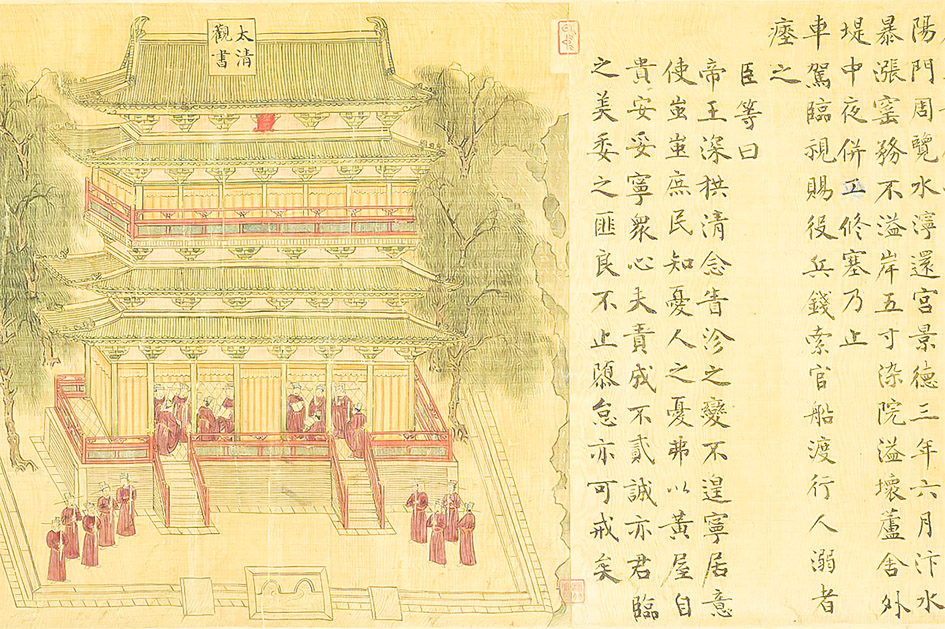 陽門周覽水濘還宮景德三年六月汴水
暴漲窯務不溢岸五寸染院溢壞蘆舍外
堤中夜併工修塞乃止
車駕臨視賜役兵錢索官船渡行人溺者
瘞之
臣等曰
帝王深栱清念眚沴之變不遑寧居意
使蚩蚩庶民知憂人之憂弗以黃屋自
貴安妥寧衆心夫責成不貳誠亦君臨
之美委之匪良不止隳怠亦可戒矣
太清
觀書